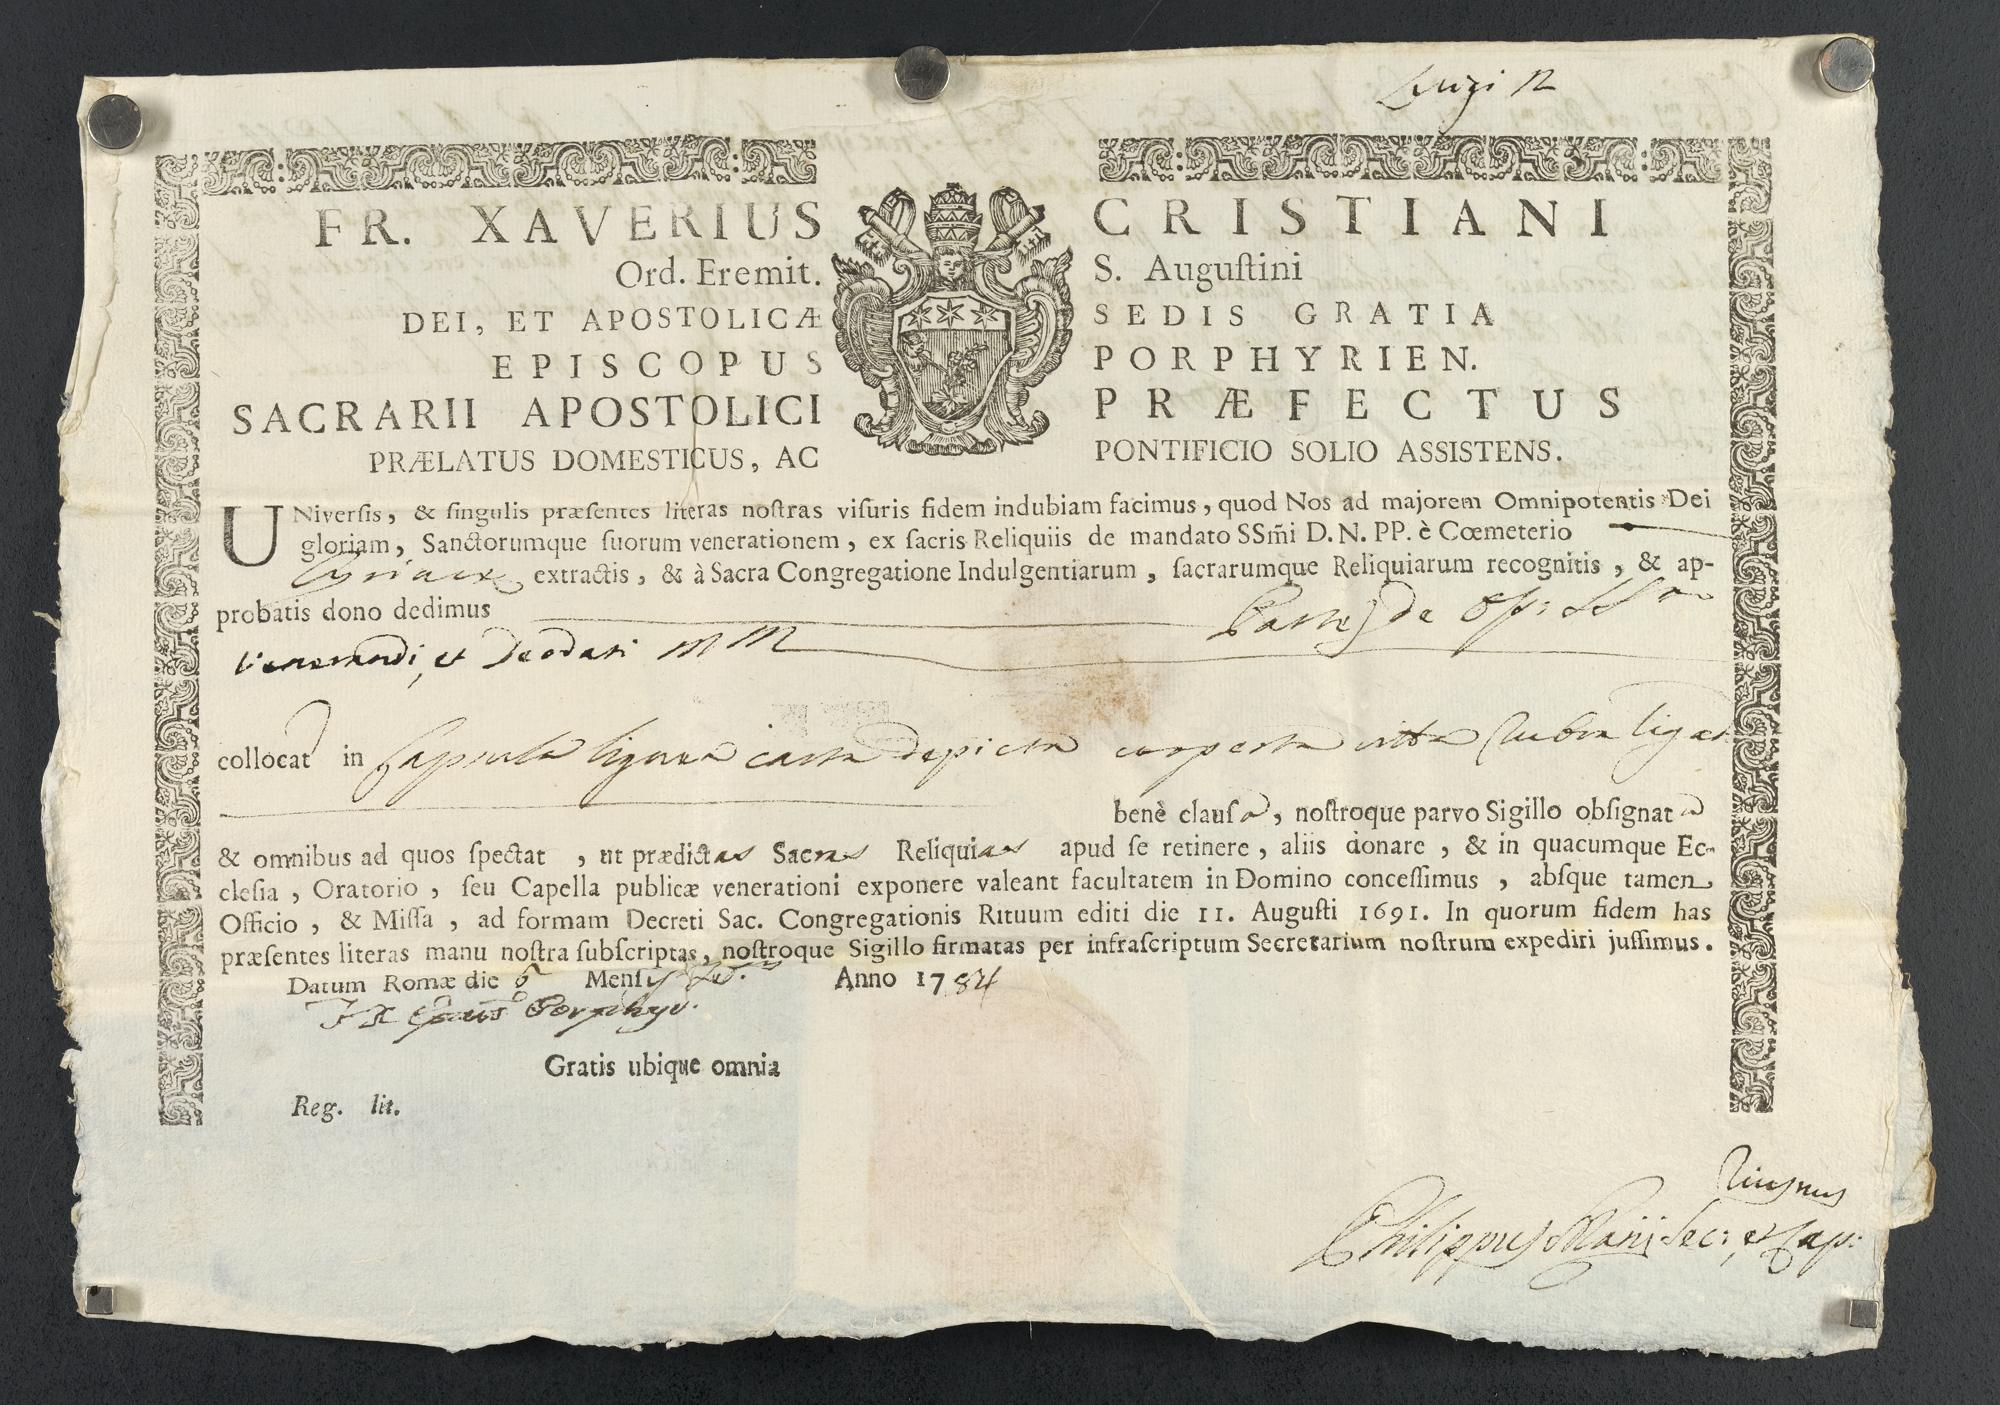 Luigi N
FR. XAVERIUS CRISTIANI
Ord. Eremit. S. Auguſtini
DEI, ET APOSTOLICÆ SEDIS GRATIA
EPISCOPUS PORPHYRIEN.
SACRARII APOSTOLICI PRÆFECTUS
PRÆLATUS DOMESTICUS, AC PONTIFICIO SOLIO ASSISTENS.
UNiverſis, & ſingulis præſentes literas noſtras viſuris fidem indubiam facimus, quod Nos ad majorem Omnipotentis Dei
gloriam, Sanctorumque ſuorum venerationem, ex ſacris Reliquiis de mandato SSm̃i D. N. PP. è Cœmeterio
Cyriacæ extractis, & à Sacra Congregatione Indulgentiarum, ſacrarumque Reliquiarum recognitis, & ap-
probatis dono dedimus Partes de Oss: SS
Venerandi, et Deodati MM
collocat in capsula lignea carta depicta cooperta vitta rubra ligat
benè clauſa, noſtroque parvo Sigillo obſignat a
& omnibus ad quos ſpectat, ut prædictas Sacras Reliquias apud ſe retinere, aliis donare, & in quacumque Ec-
cleſia, Oratorio, ſeu Capella publicæ venerationi exponere valeant facultatem in Domino conceſſimus, abſque tamen
Officio, & Miſſa, ad formam Decreti Sac. Congregationis Rituum editi die 11. Auguſti 1691. In quorum fidem has
præſentes literas manu noſtra ſubſcriptas, noſtroque Sigillo firmatas per infraſcriptum Secretarium noſtrum expediri juſſimus.
Datum Romæ die 6 Menſis Anno 1784
F X Porphyr.
Gratis ubique omnia
Reg. lit.
Philippus Sec: et Cap: